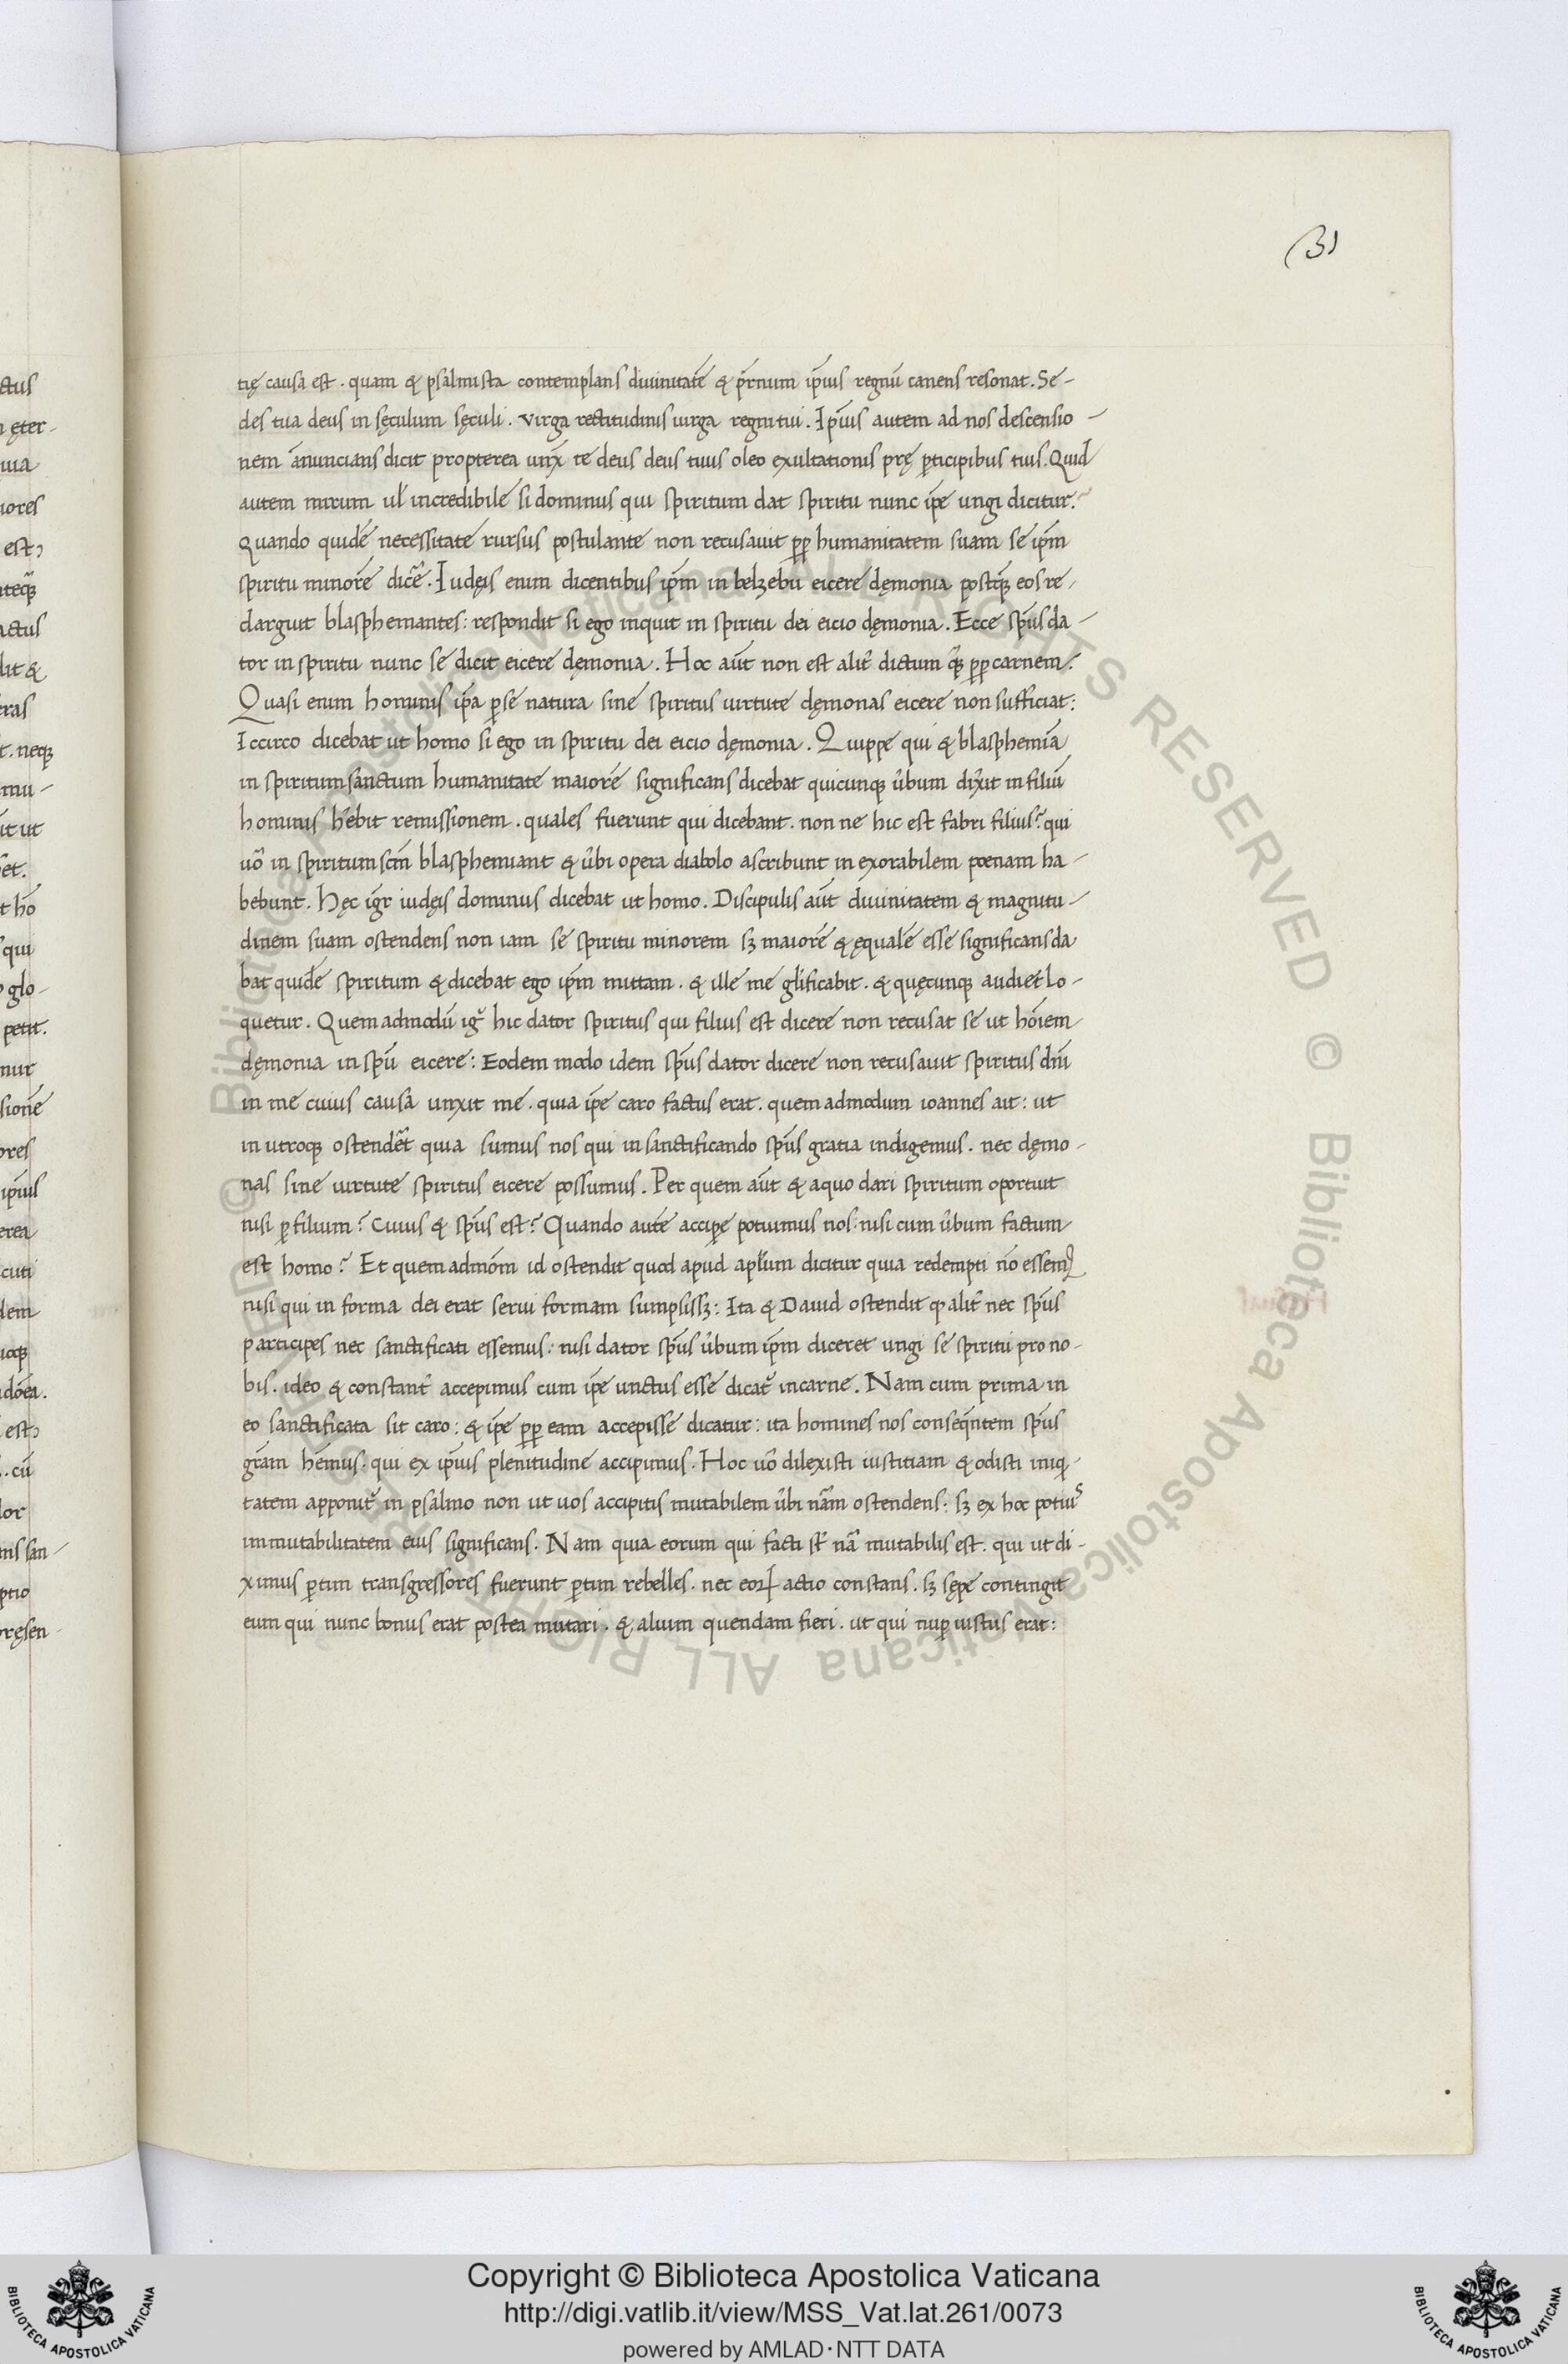 31
tię causa est . quam & psalmista contemplans diuinitatē & pr̄num ip̄ius regnū canens resonat . Se-
des tua deus in sęculum sęculi . virga rectitudinis uirga regni tui . Ip̄ius autem ad nos descensio-
nem anuncians dicit propterea unx̄ te deus deus tuus oleo exultationis prę ꝑticipibus tuis . Quid
autem mirum ul̄ incredibile si dominus qui spiritum dat spiritu nunc ip̄e ungi dicitur?
quando quidē necessitate rursus postulante non recusauit ꝓp humanitatem suam se ip̄m
spiritu minorē dicē̄ . Iudęis enim dicentibus ip̄m in belzebū eicere dęmonia postꝗ̃ eos re-
darguit blasphemantes : respondit si ego inquit in spiritu dei eicio dęmonia . Ecce sp̄us da-
tor in spiritu nunc se dicit eicere dęmonia . Hoc aūt non est alit̄ dictum ꝗ̃ ꝓp carnem?
Quasi enim hominis ip̄a ꝑ se natura sine spiritus uirtute dęmonas eicere non sufficiat :
Iccirco dicebat ut homo si ego in spiritu dei eicio dęmonia . Quippe qui & blasphemiā
in spiritum sanctum humanitate maiorē significans dicebat quicunqꝫ u̅bum dix̄it in filiū
hominis h̄ebit remissionem . quales fuerunt qui dicebant . non ne hic est fabri filius? qui
uō in spiritum sc̄m blasphemiant & u̅bi opera diabolo ascribunt in exorabilem poenam ha-
bebunt . Hęc igr̄ iudęis dominus dicebat ut homo . Discipulis aūt diuinitatem & magnitu-
dinem suam ostendens non iam se spiritu minorem sꝫ maiorē & ęqualē esse significans da
bat quidē spiritum & dicebat ego ip̄m mittam . & ille me glīficabit . & quęcunqꝫ audiet lo-
quetur . Quem admodū igr̄ hic dator spiritus qui filius est dicere non recusat se ut hoīem
dęmonia in spū eicere : Eodem modo idem sp̄us dator dicere non recusauit spiritus dn̄i
in me cuius causa unxit me . quia ip̄e caro factus erat . quem admodum ioannes ait : ut
in utroqꝫ ostendat̄ quia sumus nos qui in sanctificando sp̄us gratia indigemus . nec dęmo-
nas sine uirtute spiritus eicere possumus . Per quem aūt & a quo dari spiritum oportuit
nisi ꝑ filium? cuius & sp̄us est? Quando autē acciꝑe potuimus nos : nisi cum u̅bum factum
est homo? Et quem admōm id ostendit quod apud aplūm dicitur quia redempti nō essemꝰ
nisi qui in forma dei erat serui formam sumpsissꝫ : Ita & Dauid ostendit ꝙ alit̄ nec sp̄us
participes nec sanctificati essemus . nisi dator sp̄us u̅bum ip̄m diceret ungi se spiritu pro no-
bis . ideo & constant̄ accepimus cum ip̄e unctus esse dicat̄ in carne . Nam cum prima in
eo sanctificata sit caro : & ip̄e ꝓp eam accepisse dicatur : ita homines nos conseq̄ntem sp̄us
grām hēmus . qui ex ip̄ius plenitudine accipimus . Hoc uō dilexisti iustitiam & odisti iniq-
tatem apponit̄ in psalmo non ut uos accipitis mutabilem u̅bi nām ostendens : sꝫ ex hoc potius
immutabilitatem eius significans . Nam quia eorum qui facti st̄ nā mutabilis est . qui ut di-
ximus ꝑtim transgressores fuerunt ꝑtim rebelles . nec eoꝝ actio constans . sꝫ sępe contingit
eum qui nunc bonus erat postea mutari . & alium quendam fieri . ut qui nuꝑ iustus erat :
Copyright © Biblioteca Apostolica Vaticana
http://digi.vatlib.it/view/MSS_Vat.lat.261/0073
powered by AMLAD·NTT DATA